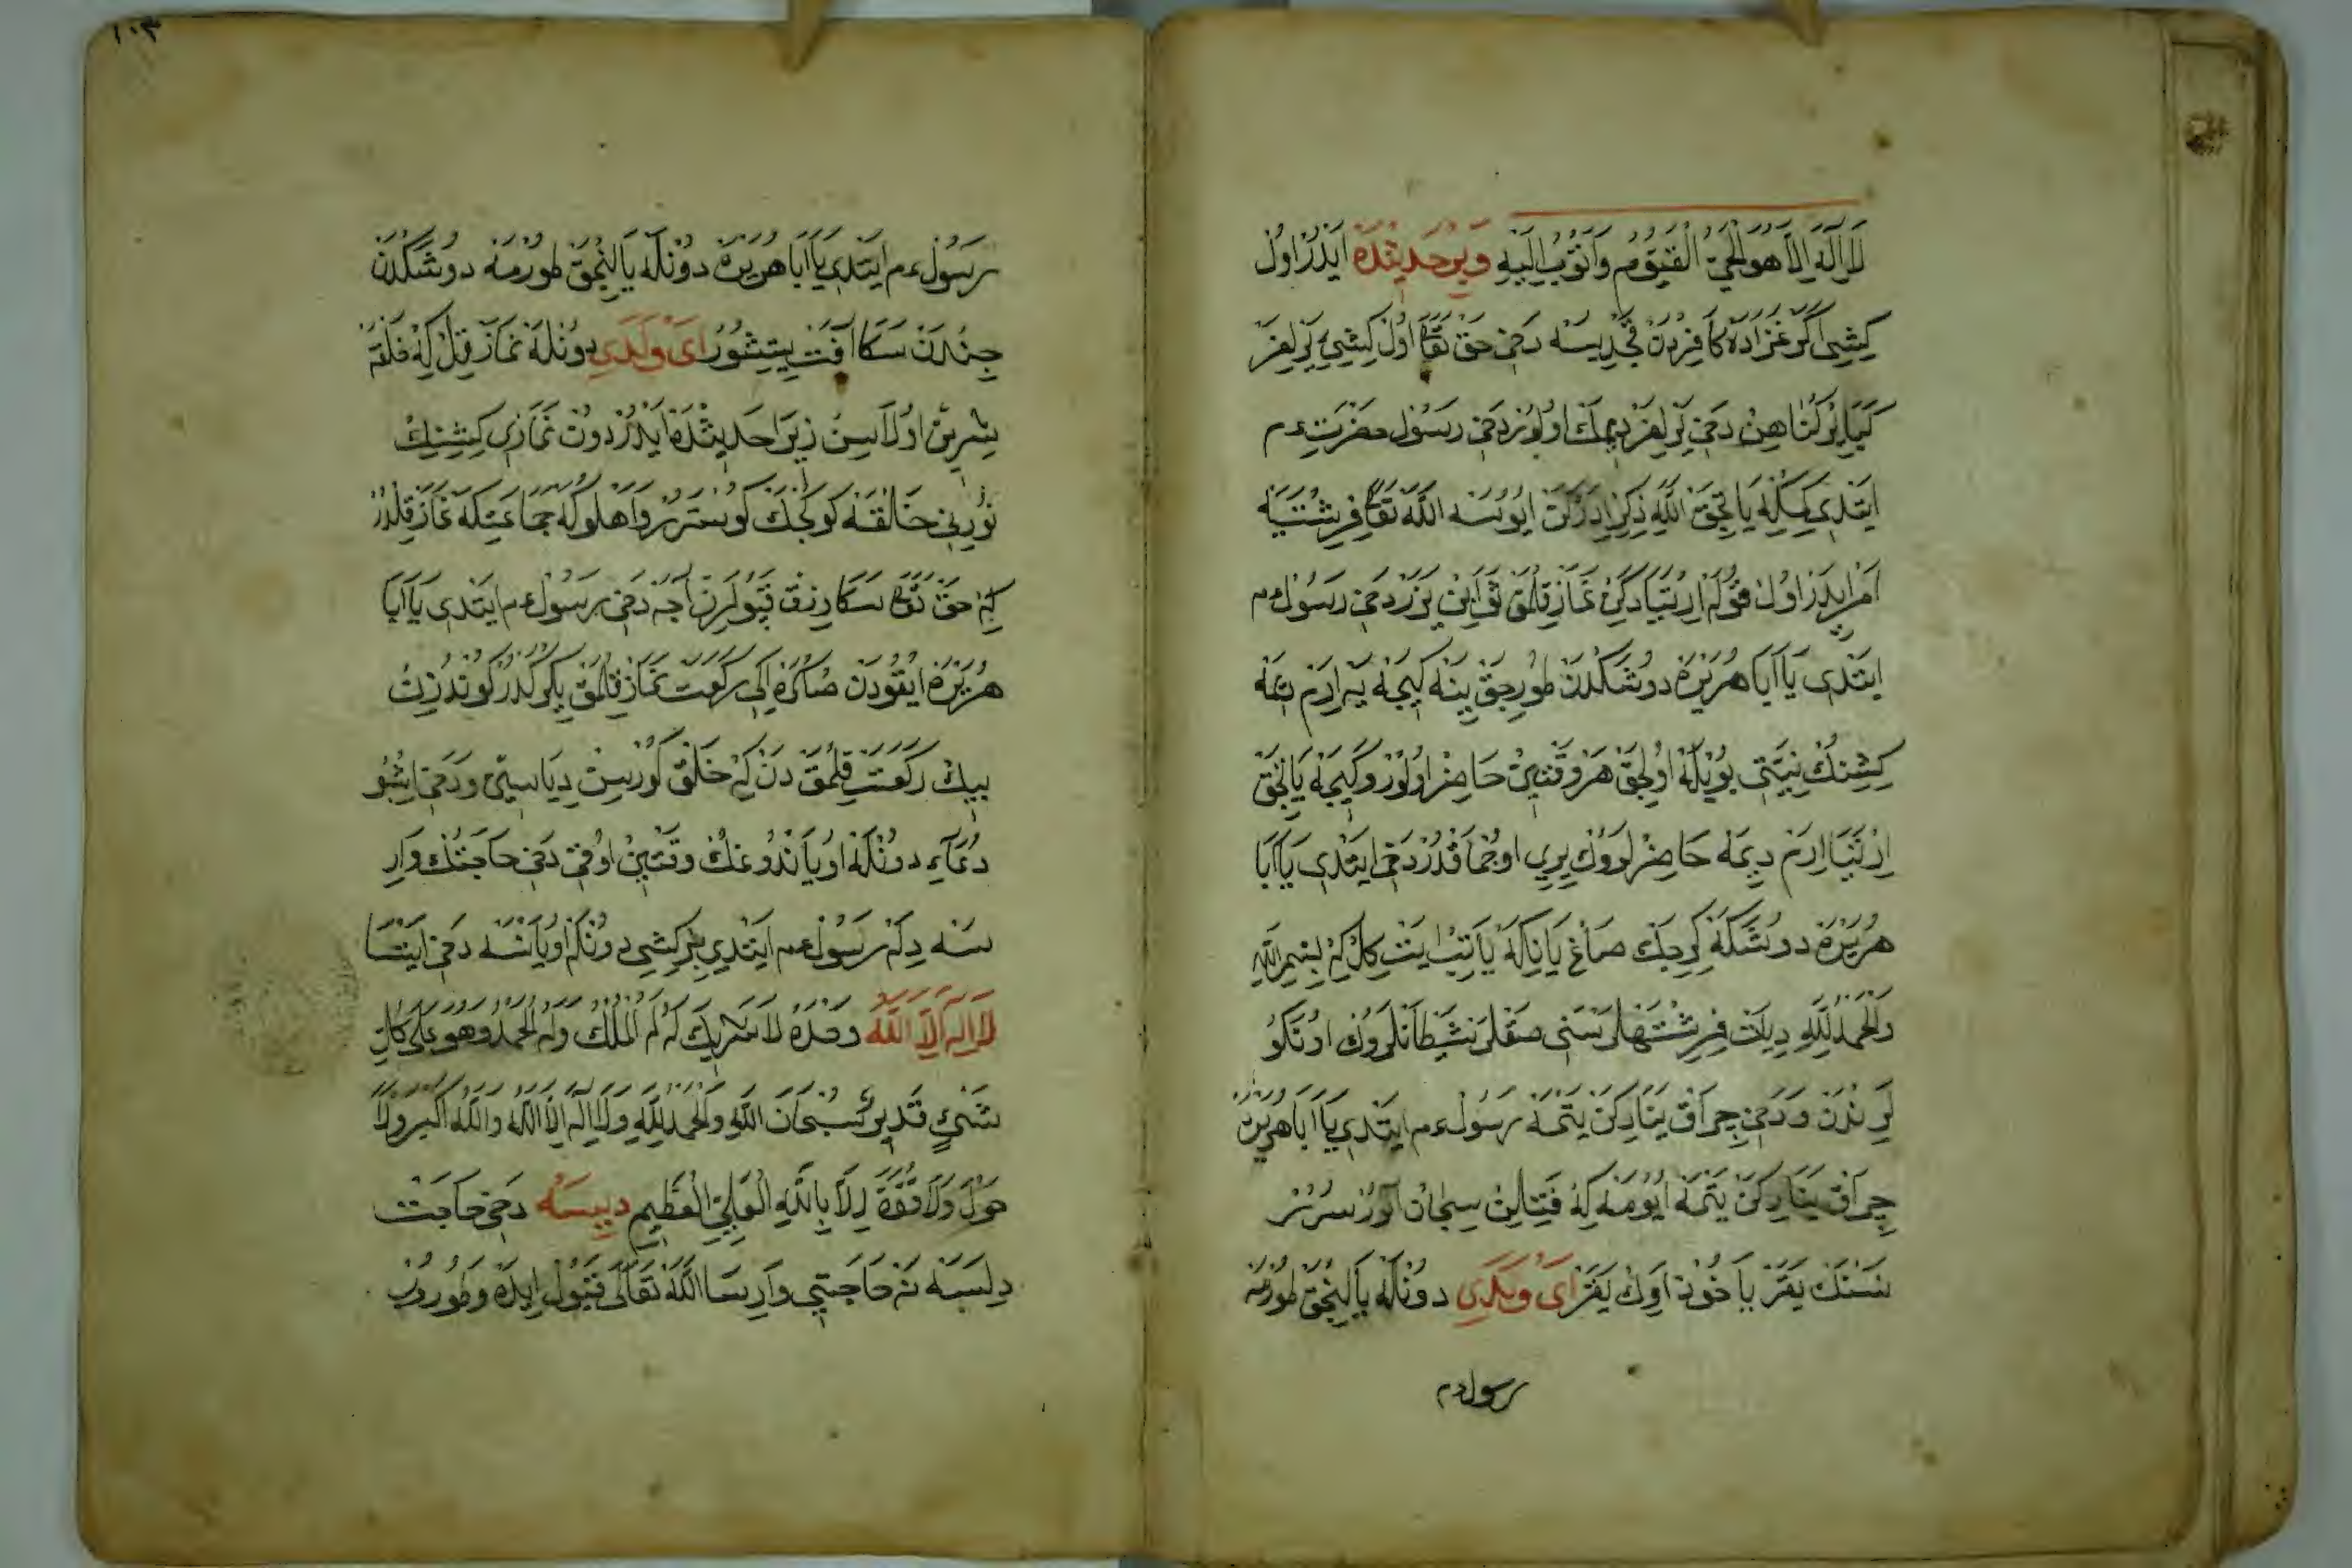 لَا اِلَهَ اِلَّا هُوَ الْحَيُّ الْقَيُّومُ وَاَتُوبُ اِلَيْهِ وَبِرْ حَدِيثْدَه اَيْدُرْ اُولْ
كِشِى اَكَرْ غَزَادَه كَافِرْدَنْ قَجْدِيسَه دَخِى حَقْ تَعَا اُولْ كِشِيِى يَرْلِغَرْ
دَخِى يَرْلِغَرْ دِيمَكْ اُولُورْ دَخِى رَسُولْ حَضْرَتِ عم
ايَتْدِى اللّٰه ذِكْرْ ايُوسَه اللّٰه تَعَا فِرِشْتَيَه
اَمْرْ ايدَرْ اُولْ قُولَه اِرْتَيَادَكِنْ نَمَازْ قِلْمَقْ ثَوَابِنْ يَزَرْ دَخِى رَسُولْ عم
ايَتْدِى يَا اَبَا هُرَيْرَه دُوشَكْدَنْ طُورِجَقْ يِنَه كِيجَه يَه اِرَرَمْ دِيمَه
كِشِنِكْ نِيَّتِى بُويْلَه اُولِجَقْ هَرْ وَقْتِنْ حَاضِرْ اُولُورْ وَكِيجَه يَاتِجَقْ
اِرْتَيَا اِرَرَمْ دِيمَه حَاضِرْلَرُوكْ يِرِى اُوجْمَاقْدُرْ دَخِى ايَتْدِى يَا اَبَا
هُرَيْرَه دُوشَكَه كِرِجَكْ صَاغْ يَانِكَه يَاتِبْ كَلْ كِه بِسْمِ اللّٰهِ
وَالْحَمْدُ لِلّٰهِ دِيكِلْ فِرِشْتَهلَرْ سَنِى صَقْلَرْ شَيْطَانْلَرُوكْ اُوتَكُو
لَرِنْدَنْ وَدَخِى چِرَاقْ يَنَارِكَنْ يَتْمَه رَسُولْ عم ايَتْدِى يَا اَبَا هُرَيْرَه
چِرَاقْ يَنَارِكَنْ يَتْمَه ايُومَه كِه فَتِيلِنْ سِچَانْ
يَقَرْ يَاخُودْ اَوِكْ يَقَرْ اَىْ وَلَدِى دُونْلَه يَالِنْجَقْ طُورْمَه
رسول عم
رَسُولْ عم ايَتْدِى يَا اَبَا هُرَيْرَه دُونْلَه يَالِنْجَقْ طُورْمَه دُوشَكْدَنْ
جِنْدَنْ سَكَا آفَتْ يِتِشُورْ اَىْ وَلَدِى دُونْلَه نَمَازْ قِلْ كِه خَلْقَه
شِيرِينْ اُولَاسِنْ زِيرَا حَدِيثْدَه اَيْدُرْ دُونْ نَمَازِى كِشِنِكْ
نُورِنِى خَالِقَه كُوكْچَكْ كُوسْتَرُرْ جَمَاعَتِلَه نَمَازْ قِلْدُرْ
كِه حَقْ تَعَا سَكَا رِزْقْ قَپُولَرِنْ آچَه دَخِى رَسُولْ عم ايَتْدِى يَا اَبَا
هُرَيْرَه اُيْقُودَنْ صَكْرَه اِكِى رَكْعَتْ نَمَازْ قِلْمَقْ يِكْرَكْدُرْ كُونْدُزِنْ
بِيكْ رَكْعَتْ قِلْمَقْدَنْ كِه خَلْقْ كُورْسِنْ دِيَا وَدَخِى اِشْبُو
دُعَايِ دُونْلَه اُويَانْدُوغِنْكْ وَقْتِنْ اُوقِى دَخِى حَاجَتِنْكْ وَارِ
سَه دِلَه رَسُولْ عم ايَتْدِى بِرْ كِشِى دُونْلَه اُويَانْسَه دَخِى ايَتْسَا
لَا اِلَهَ اِلَّا اللّٰهُ وَحْدَهُ لَا شَرِيكَ لَهُ لَهُ الْمُلْكُ وَلَهُ الْحَمْدُ وَهُوَ عَلَى كُلِّ
شَىْءٍ قَدِيرٌ سُبْحَانَ اللّٰهِ وَالْحَمْدُ لِلّٰهِ وَلَا اِلَهَ اِلَّا اللّٰهُ وَاللّٰهُ اَكْبَرُ وَلَا
حَوْلَ وَلَا قُوَّةَ اِلَّا بِاللّٰهِ الْعَلِىِّ الْعَظِيمِ دِيسَه دَخِى حَاجَتْ
دِلَسَه نَه حَاجَتِى وَارِسَا اللّٰه تَعَالَى قَبُولْ ايدَه وَطُورُوبْ
١٠٣